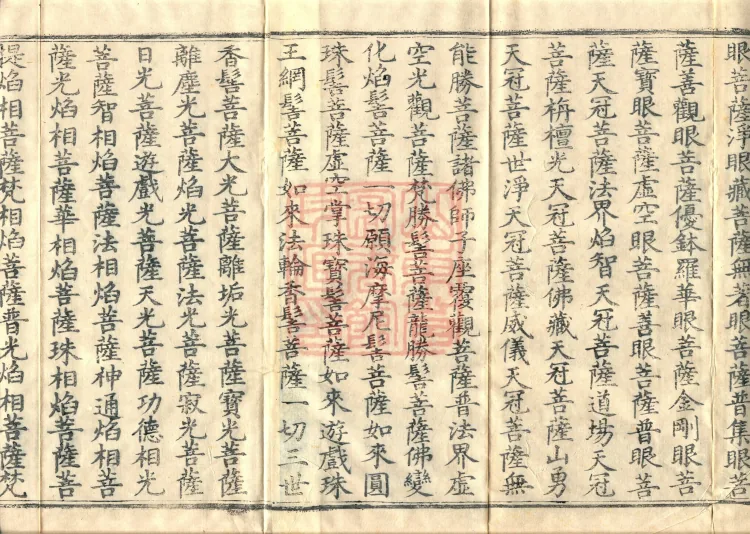 眼菩薩淨眼藏菩薩無著眼菩薩普集眼菩
薩善觀眼菩薩優鉢羅華眼菩薩金剛眼菩
薩寶眼菩薩虛空眼菩薩善眼菩薩普眼菩
薩天冠菩薩法界焰智天冠菩薩道場天冠
菩薩栴檀光天冠菩薩佛藏天冠菩薩山勇
天冠菩薩世淨天冠菩薩威儀天冠菩薩無
能勝菩薩諸佛師子座覆觀菩薩普法界虛
空光觀菩薩梵勝髻菩薩龍勝髻菩薩佛變
化焰髻菩薩一切願海摩尼髻菩薩如來圓
珠髻菩薩虛空掌珠寶髻菩薩如來遊戲珠
王網髻菩薩如來法輪香髻菩薩一切三世
香髻菩薩大光菩薩離垢光菩薩寶光菩薩
離塵光菩薩焰光菩薩法光菩薩寂光菩薩
日光菩薩遊戲光菩薩天光菩薩功德相光
菩薩智相焰菩薩法相焰菩薩神通焰相菩
薩光焰相菩薩華相焰菩薩珠相焰菩薩菩
提焰相菩薩梵相焰菩薩普光焰相菩薩梵